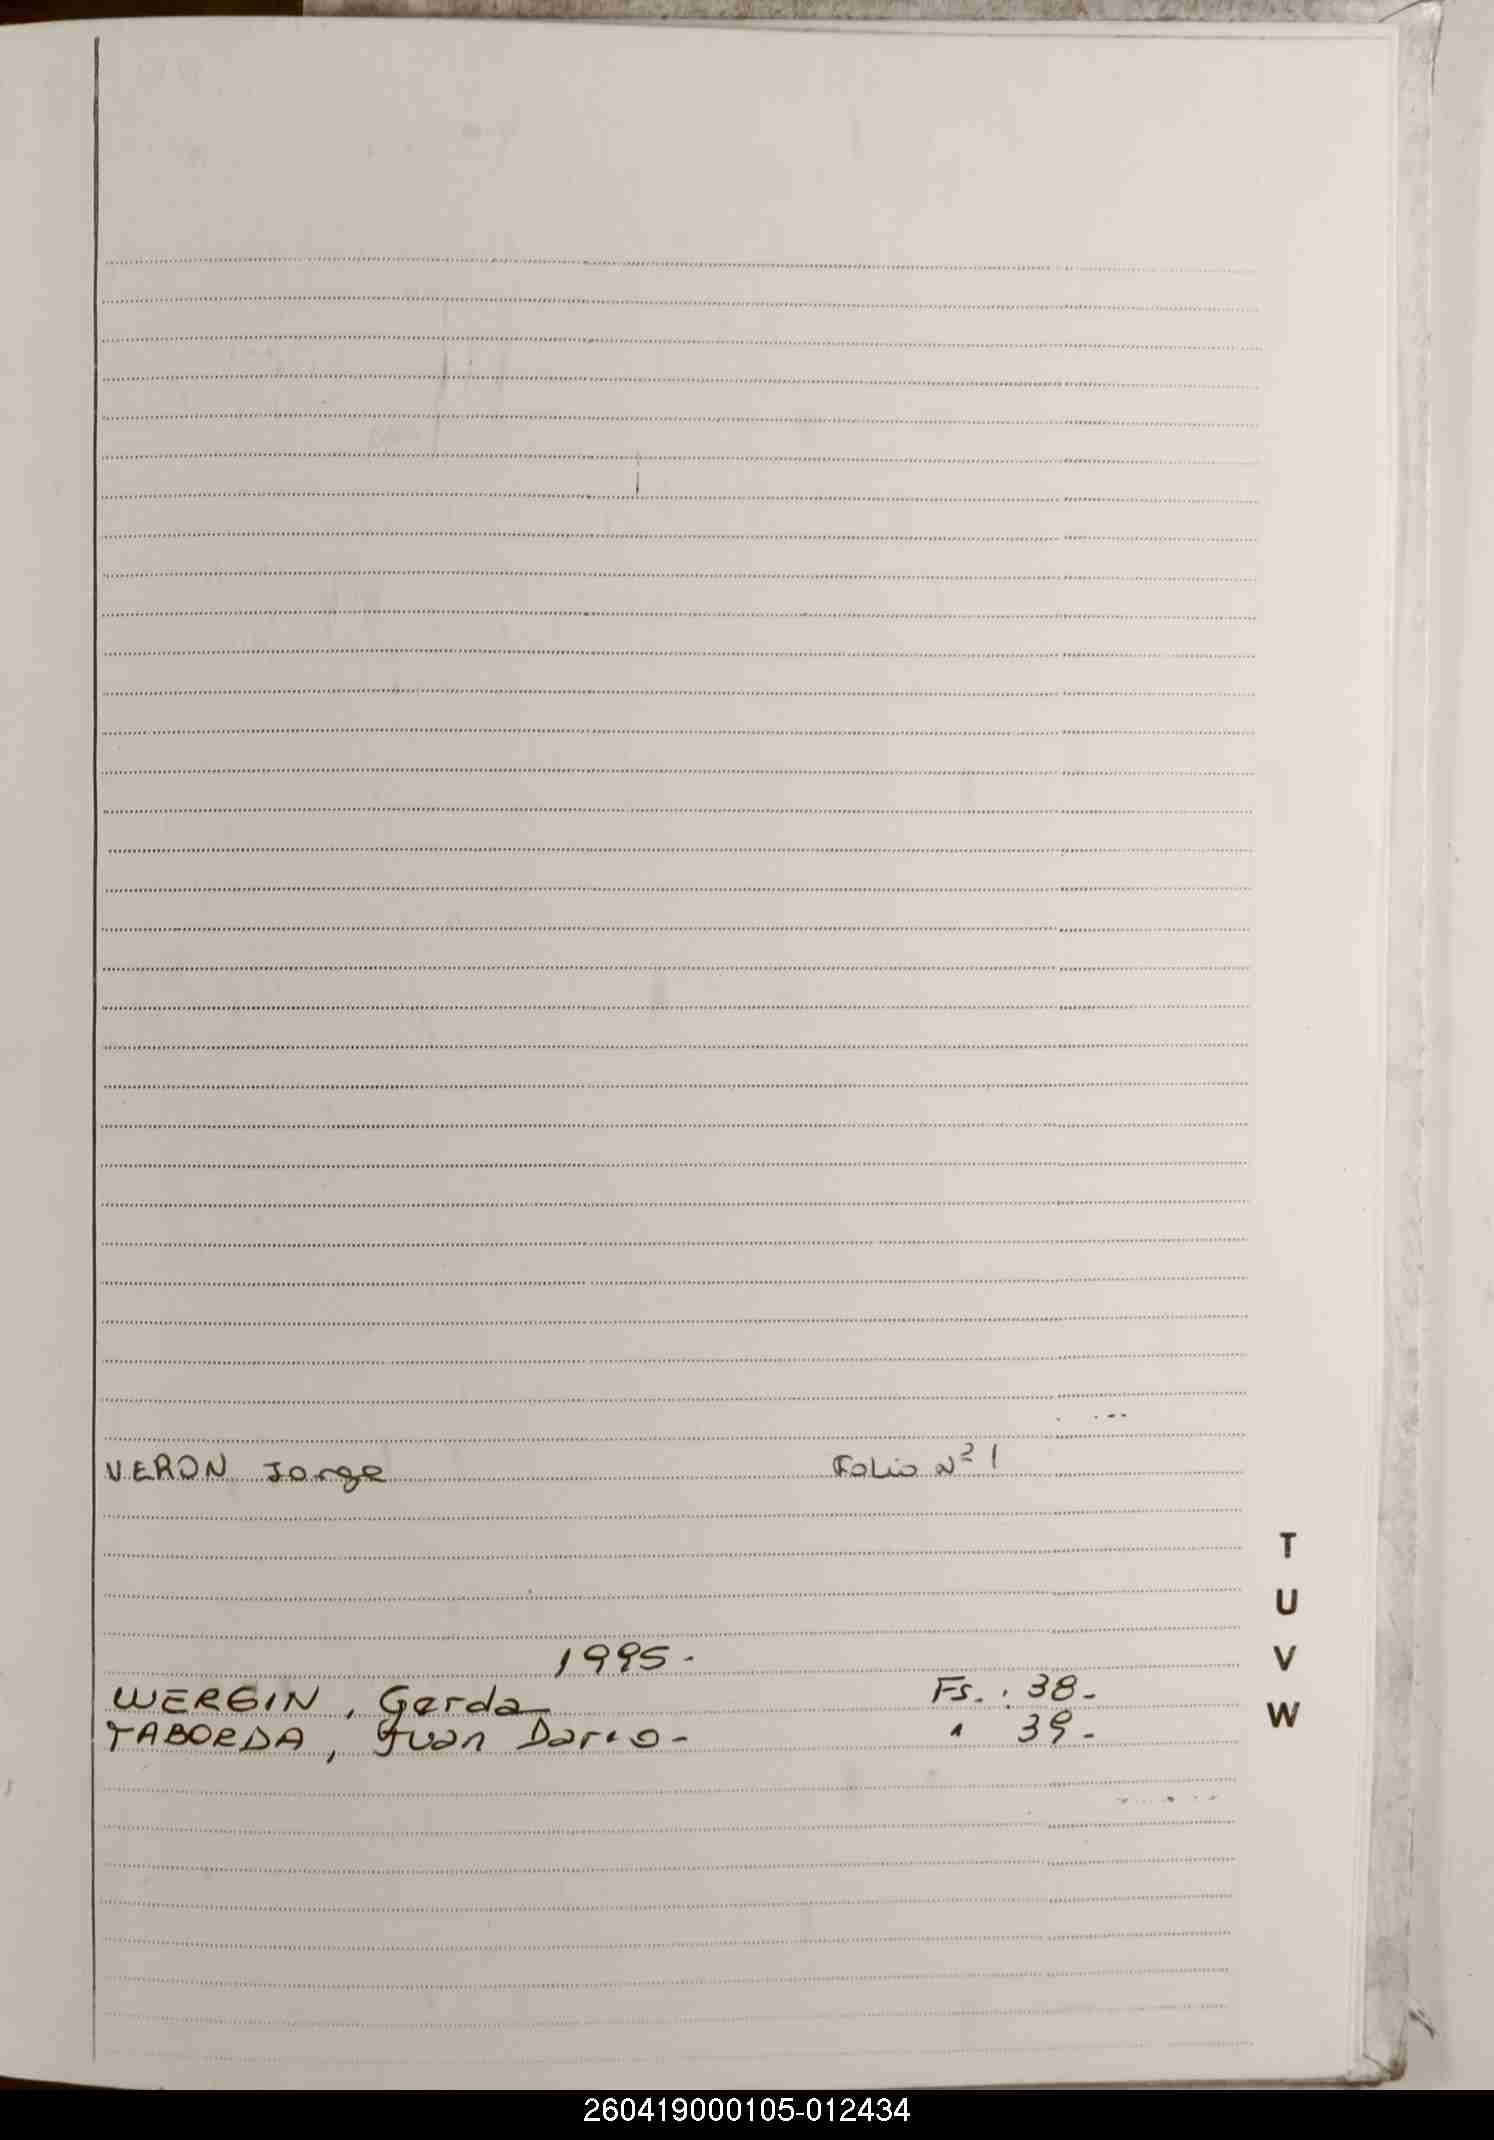 VERON Jorge Folio Nº 1
T
U
1995.
V
WERGIN, Gerda Fs. : 38-
W
TABORDA, Juan Dario- " 39-
260419000105-012434